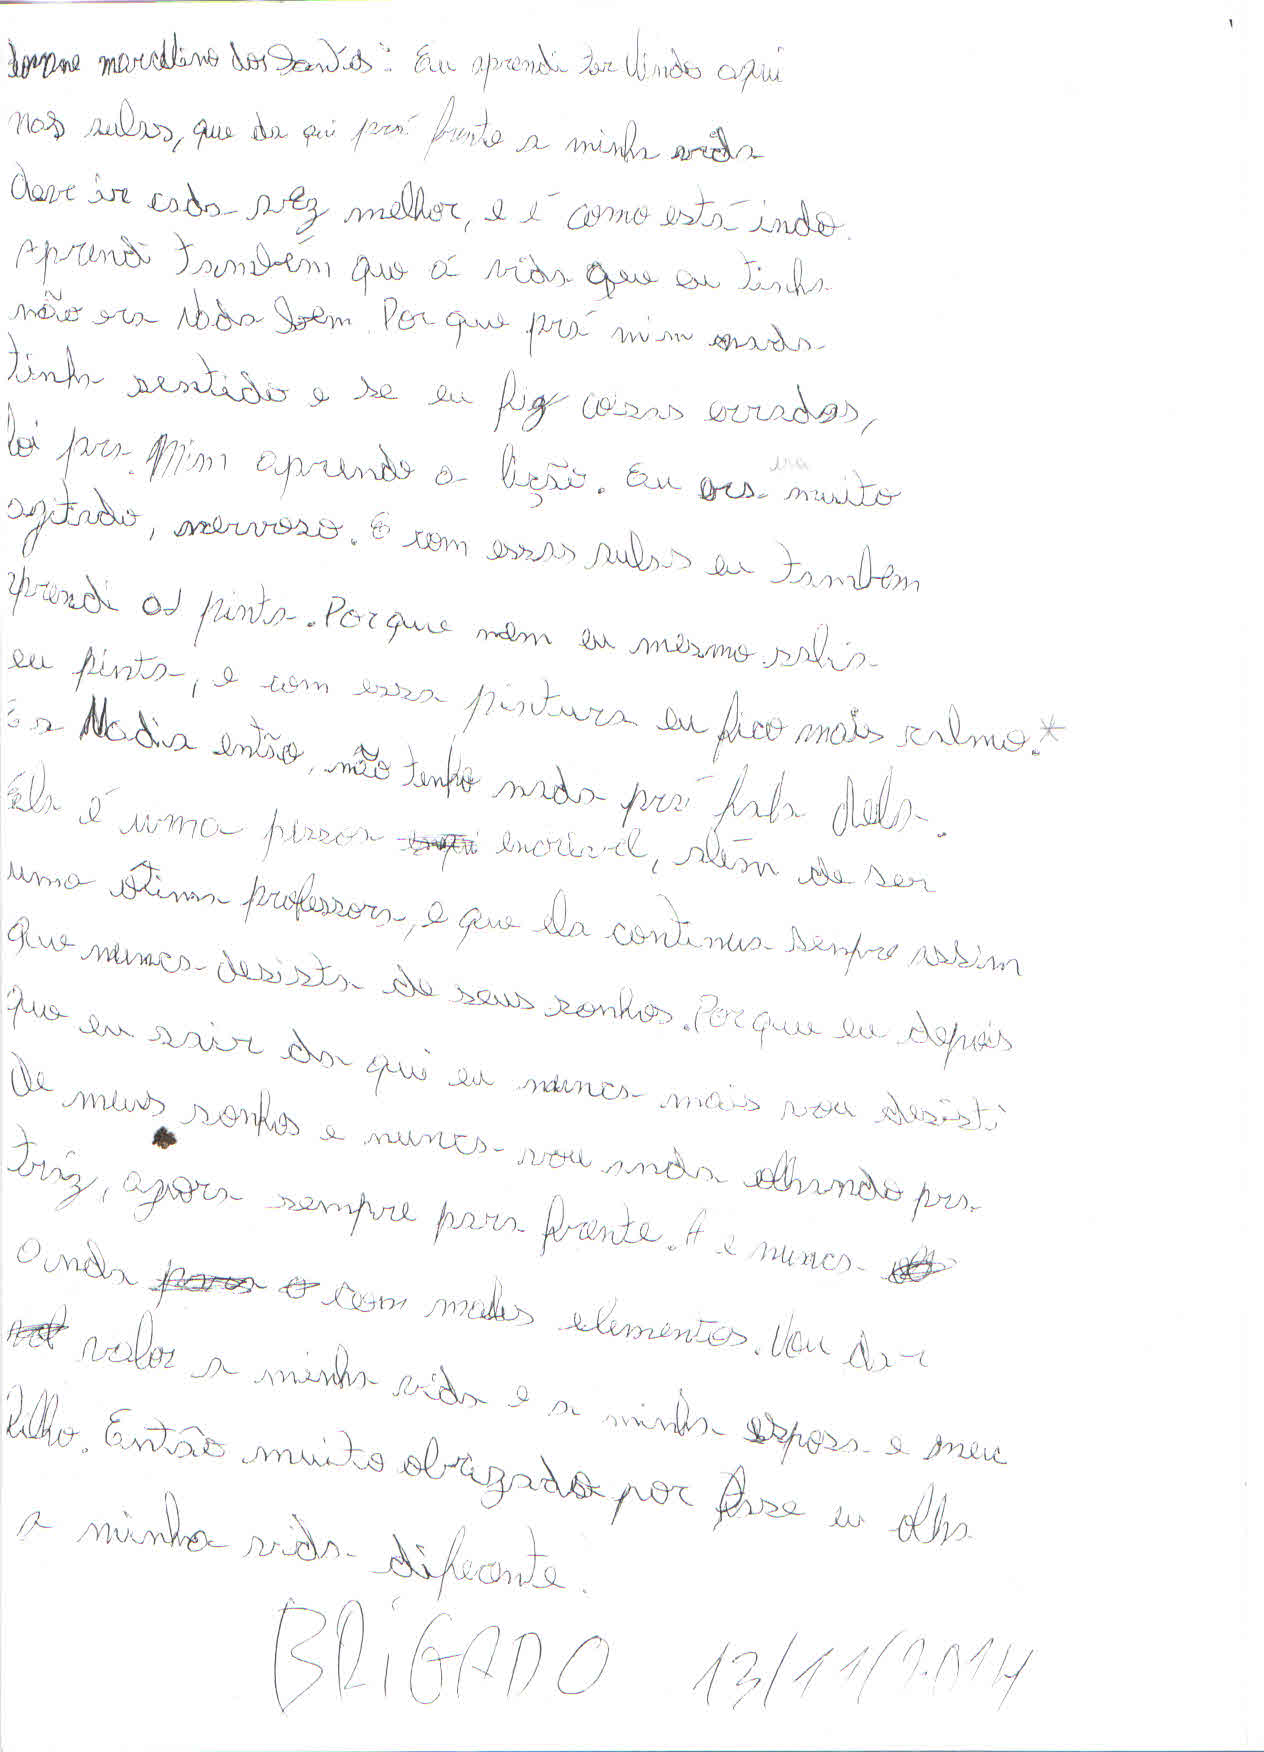 marcelino dos Santos: Eu aprendi ter Vindo aqui
nas aulas, que da qui prá frente a minha vida
deve ir cada vez melhor, e é como está indo.
Aprendi também que á vida que eu tinha
não era Nada bem. Por que prá mim nada
tinha sentido e se eu fiz coisas erradas,
foi pra Mim aprende a lição. Eu era muito
agitado, nervoso. E com essas aulas eu também
aprendi a pinta. Porque nem eu mesmo sabia
eu pinta, e com essa pintura eu fico mais calmo.*
É a Nadia então, não tenho nada prá fala dela.
Ela é uma pessoa encrivel, além de ser
uma ôtima professora, e que ela continua sempre assim
que nunca desista de seus sonhos. Porque eu depois
que eu sair da qui eu nunca mais vou desisti
de meus sonhos e nunca vou anda olhando pra
tráz, agora sempre para frente. A e nunca
anda com maus elementos. Vou dar
valor a minha vida e a minha esposa e meu
filho. Então muito obrigado por fase eu olha
a minha vida diferente.
BRIGADO 13/11/2014